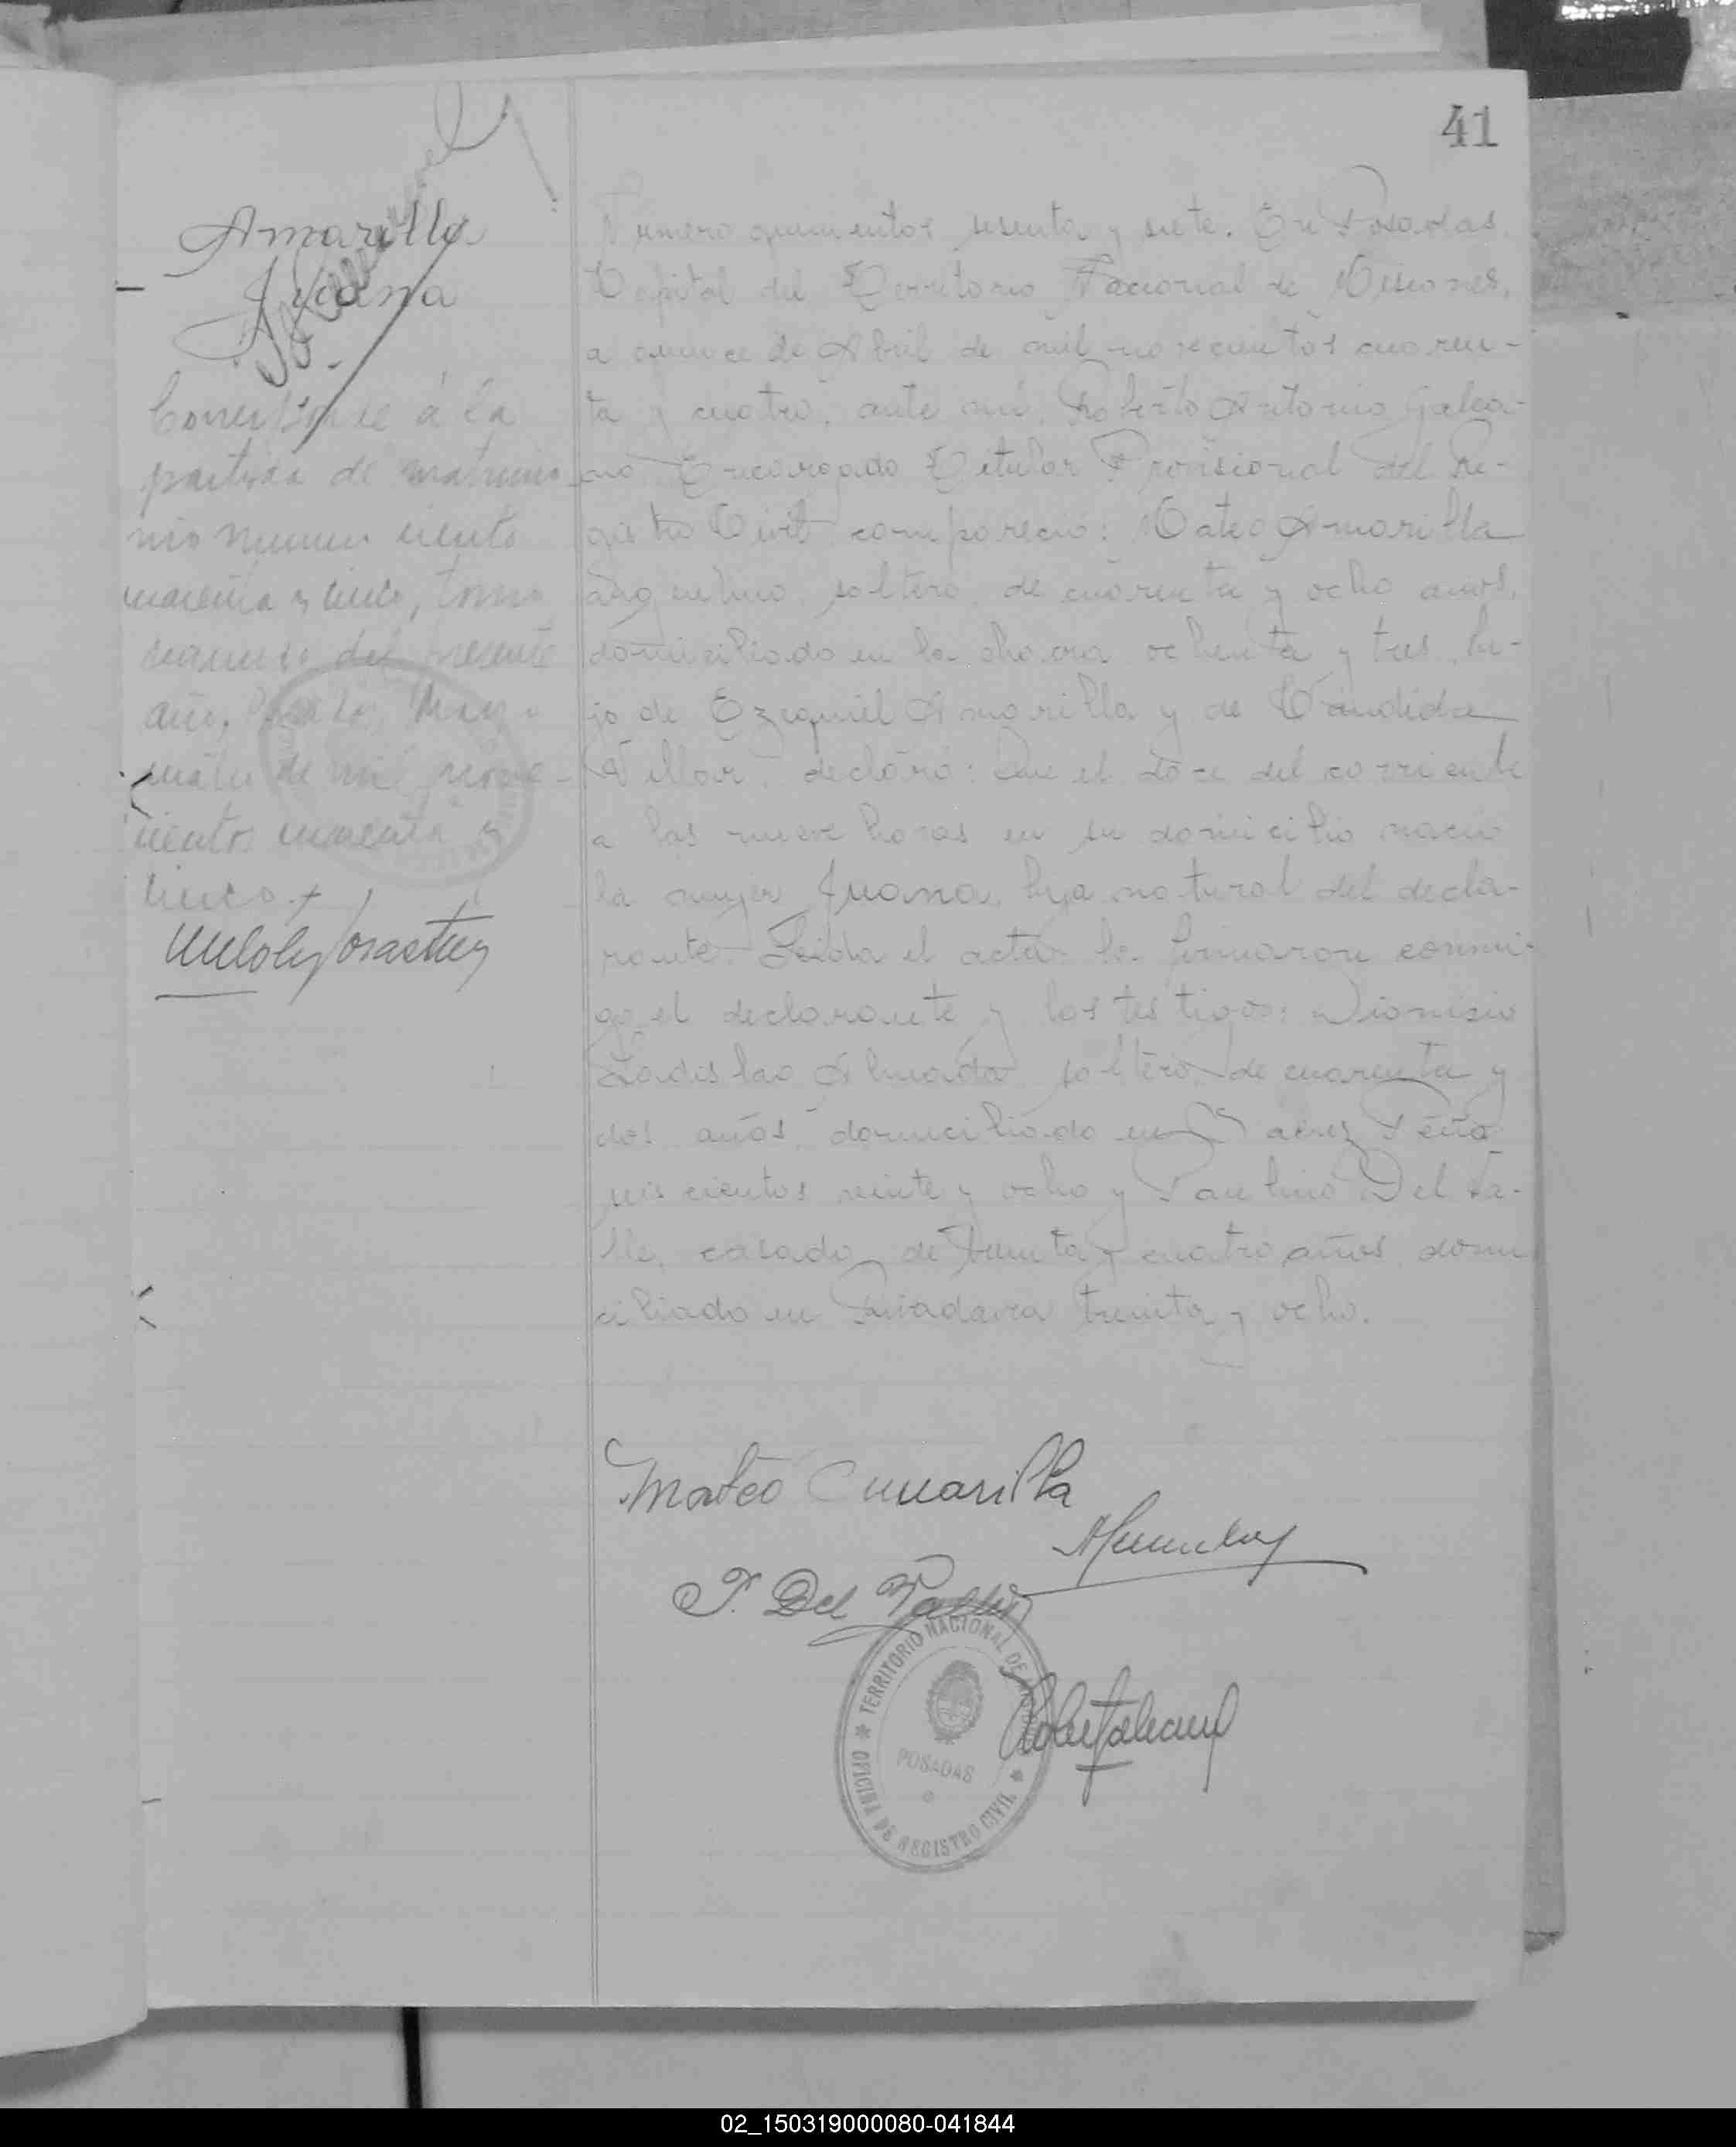 41
Amarilla
Juana
á la
partida de matrimo-
nio numero ciento
cuarenta y cinco, tomo
del presente
año,
de mil nove-
cientos cuarenta y
cinco.
Numero quinientos sesenta y siete. En Posadas
Capital del Territorio Nacional de Misiones,
a quince de Abril de mil novecientos cuaren-
ta y cuatro, ante mi, Roberto Antonio Galea-
no Encargado Titular Provisional del Re-
gistro Civil comparecio: Mateo Amarilla
argentino, soltero, de cuarenta y ocho años,
domiciliado en la chacra ochenta y tres, hi-
jo de Ezequiel Amarilla y de Candida
Villar, declaró: Que el doce del corriente
a las nueve horas en su domicilio nacio
la mujer Juana, hija natural del decla-
rante. Leida el acta la firmaron conmi-
go el declarante y los testigos: Dionisio
Ladislao Almada soltero, de cuarenta y
dos años domiciliado en Saenz Peña
seis cientos veinte y ocho y Paulino Del Va-
lle, casado, de treinta y cuatro años domi
ciliado en Rivadavia treinta y ocho.
Mateo Amarilla
P. Del Valle
TERRITORIO NACIONAL DE
POSADAS
OFICINA DE REGISTRO CIVIL
02_150319000080-041844